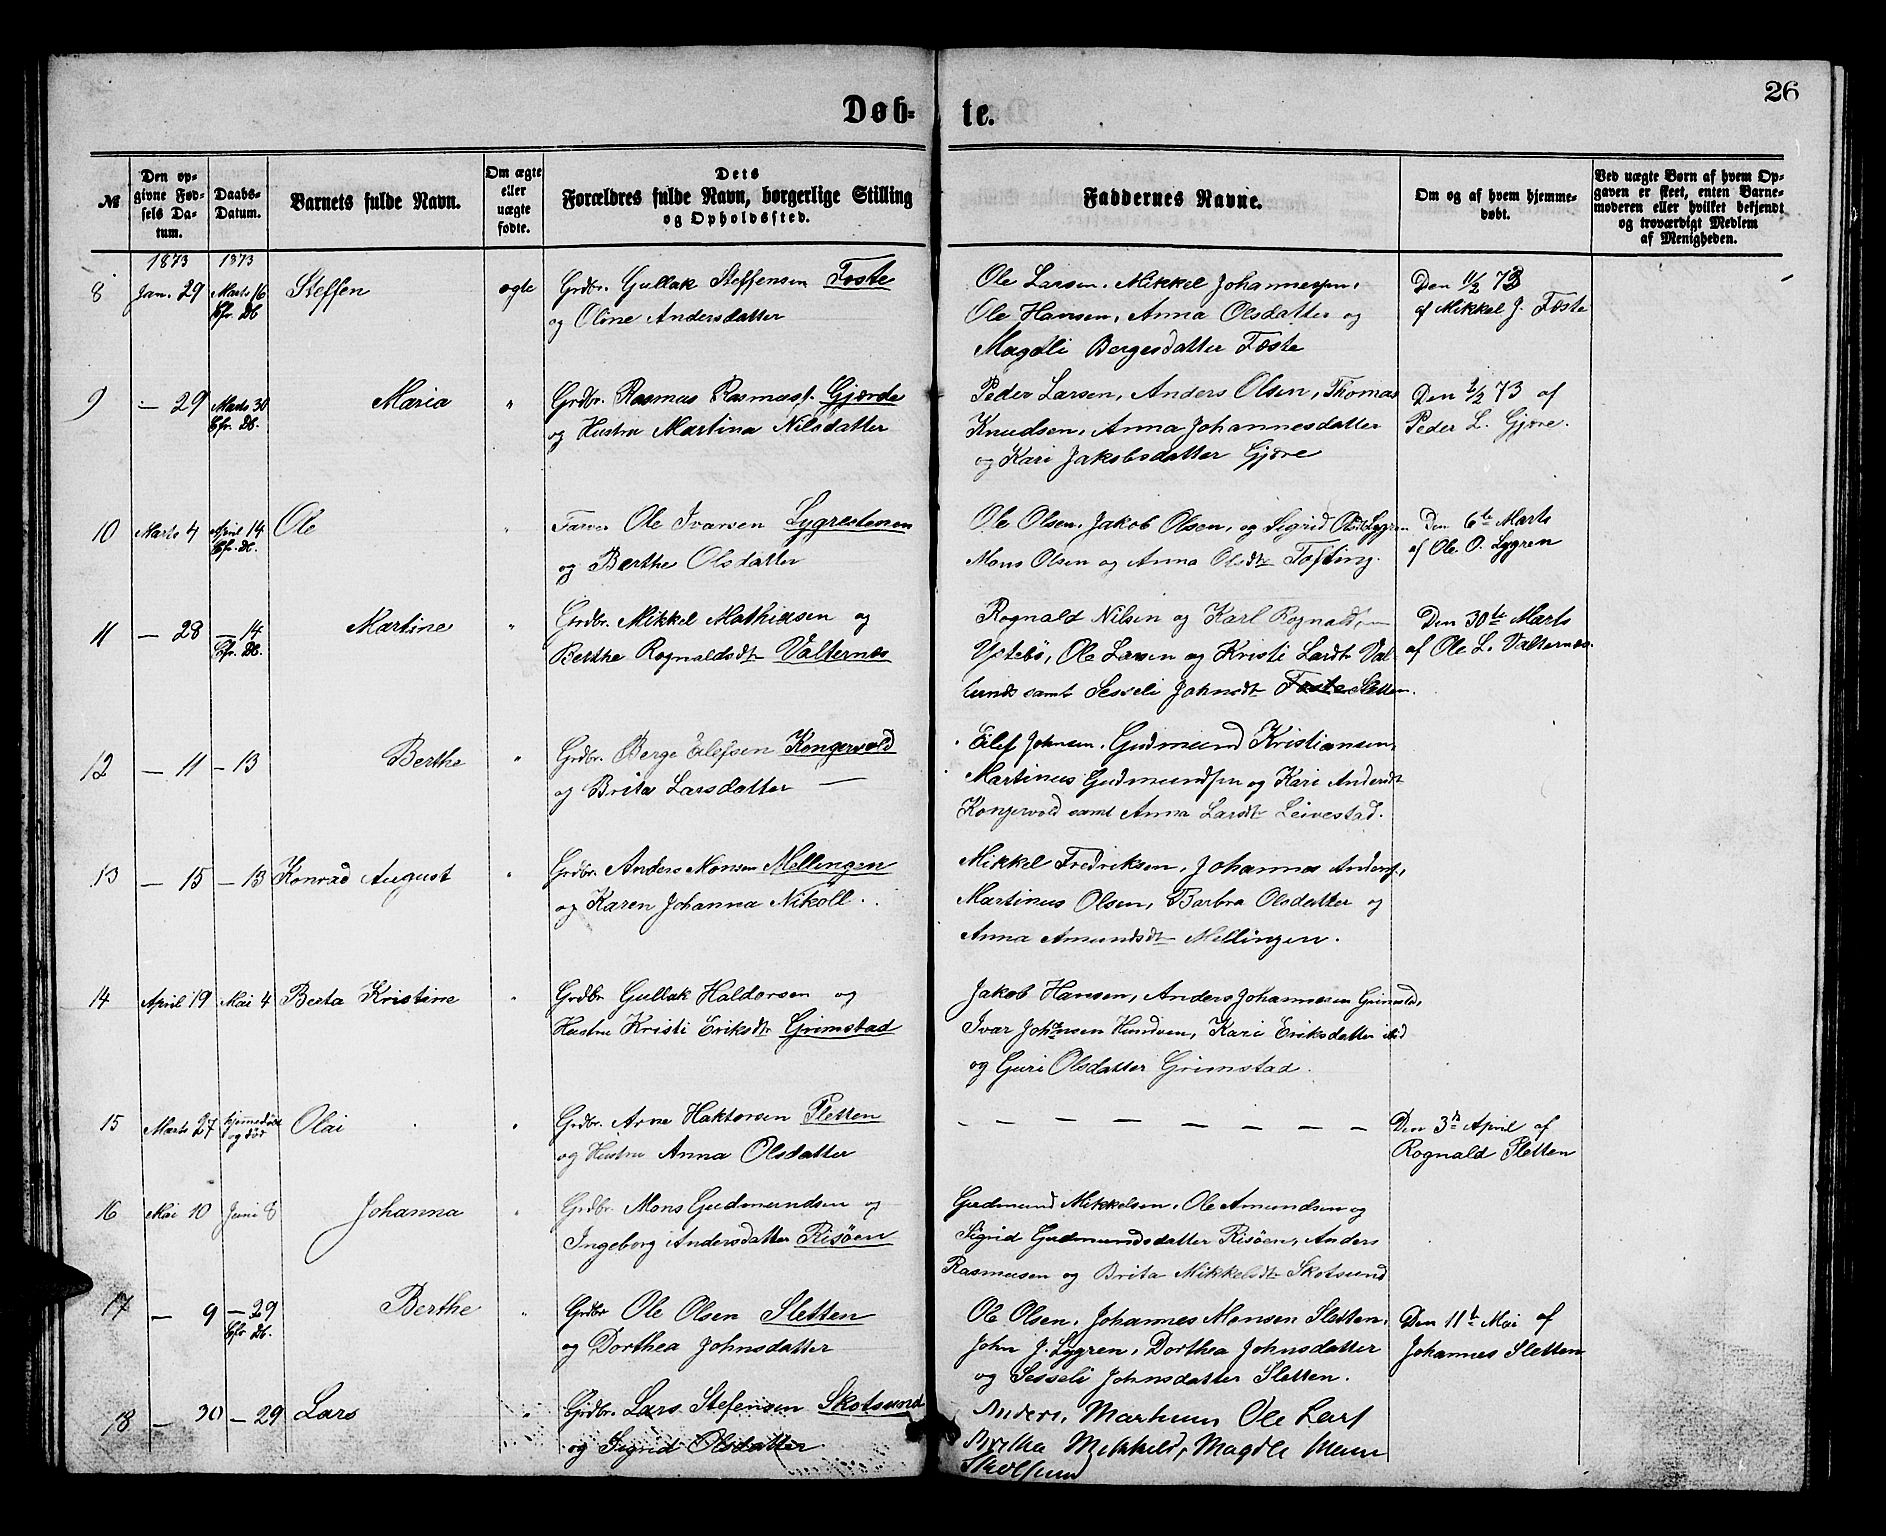 26
Døb- te.
№
Den op-
givne Fød-
sels Da-
tum.
Daabs-
Datum.
Barnets fulde Navn.
Om ægte
eller
uægte
fødte.
Dets
Forældres fulde Navn, borgerlige Stilling
og Opholdssted.
Faddernes Navne.
Om og af hvem hjemme-
døbt.
Ved uægte Børn af hvem Op-
gaven er skeet, enten Barne-
moderen eller hvilket bekjendt
og troværdigt Medlem
af Menigheden.
1873 1873
8 Jan. 29 Marts 16 Steffen ægte Grdbr. Gullak Steffensen Foste
og Oline Andersdatter
Ole Larsen, Mikkel Johannessen,
Ole Hansen, Anna Olsdatter og
Magdli Bergesdatter Fæste
Den 11/2 73
af Mikkel J. Fæste
9 — 29 Marts 30 Maria " Grdbr. Rasmus Rasmuss. Gjærde
og Hustru Martina Nilsdatter
Peder Larsen, Anders Olsen, Thomas
Knudsen, Anna Johannesdatter
og Kari Jakobsdatter Gjøre
Den 2/2 73 af
Peder L. Gjøre.
10 Marts 4 April 14 Ole " Ole Ivarsen Lygrestenen
og Berthe Olsdatter
Ole Olsen, Jakob Olsen, og Sigrid Olsdt Lygren
Mons Olsen og Anna Olsdt Tofting.
Den 6te Marts
af Ole O. Lygren
11 — 28 — 14 Martine " Grdbr. Mikkel Mathiasen og
Berthe Rognaldsdt Valternes
Rognald Nilsen og Karl Rognalds
Ystebö, Ole Larsen og Kristi Larsdt Val-
samt Sesseli Johnsdt Foste Sletten.
Den 30te Marts
af Ole L. Valternes.
12 — 11 — 13 Berthe " Grdbr. Berge Eilefsen Kongervold
og Brita Larsdatter —
Eilef Johnsen, Gudmund Kristiansen,
Martinus Gudmundsen og Kari Andersdt
Kongervold samt Anna Larsdt Leivestad.
13 — 15 — 13 Konrad August " Grdbr. Anders Monsen Mellingen
og Karen Johanna Nikoll.
Mikkel Fredriksen, Johannes Anders.,
Martinus Olsen, Barbra Olsdatter og
Anna Amundsdt Mellingen.
14 April 19 Mai 4 Berta Kristine " Grdbr Gullak Haldorsen og
Hustru Kristi Eriksdt Grimstad
Jakob Hansen, Anders Johannesen Grimstad,
Ivar Johnsen Hundven, Kari Eriksdatter ibid
og Guri Olsdatter Grimstad.
15 Marts 27 hjemmedøbt
og død Olai " Grdbr. Arne Haktorsen Sletten
og Hustru Anna Olsdatter
— — — — — — — —
Den 3de April af
Rognald Sletten
16 Mai 10 Juni 8 Johanna " Grdbr. Mons Gudmundsen og
Ingeborg Andersdatter Risöen
Gudmund Mikkelsen, Ole Amundsen og
Sigrid Gudmundsdatter Risöen, Anders
Rasmusen og Brita Mikkelsdt Skotsund
17 — 9 — 29 Berthe " Grdbr Ole Olsen Sletten
og Dorthea Johnsdatter
Ole Olsen, Johannes Monsen Sletten,
John J. Lygren, Dorthea Johnsdatter
og Sesseli Johnsdatter Sletten.
Den 11te Mai af
Johannes Sletten
18 — 30 — 29 Lars " Grdbr. Lars Stefensen Skotsund
og Sigrid Olsdatter
Ole Lars
Magdle